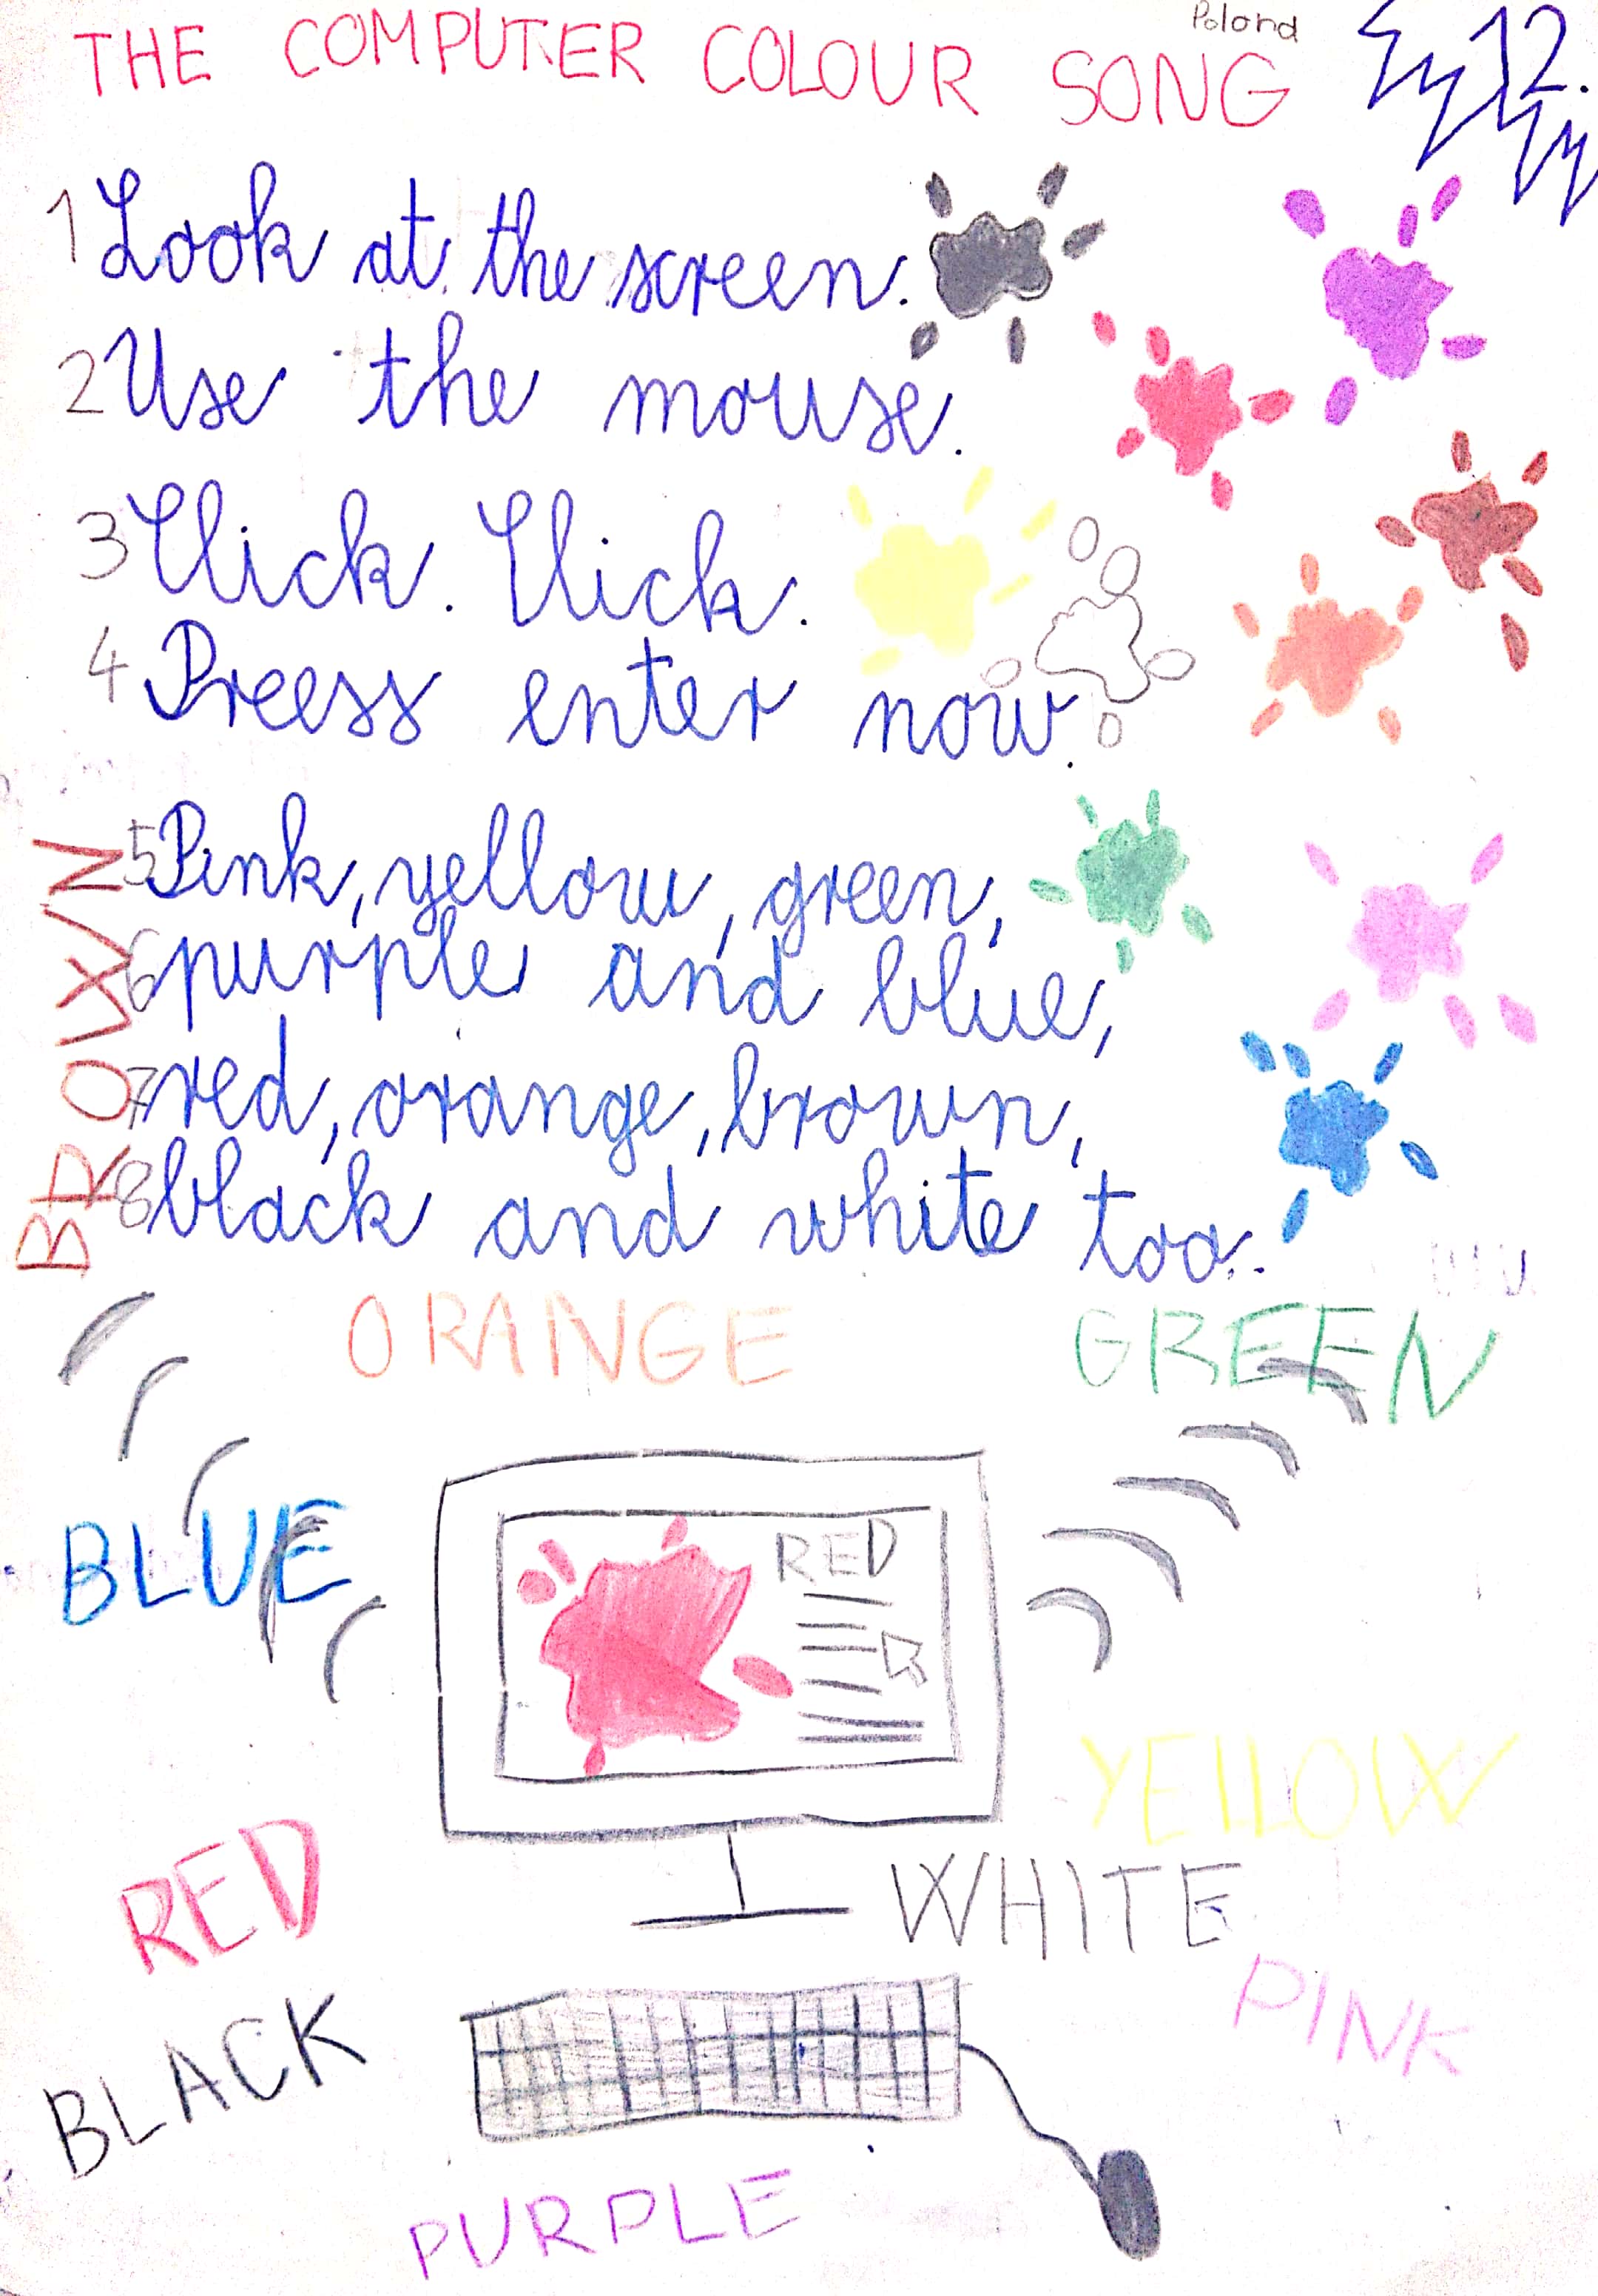 Poland
THE COMPUTER COLOUR SONG
12.
1 Look at the screen.
2 Use the mouse.
3 Click. Click.
4 Preess enter now.
5 Pink, yellow, green,
6 purple and blue,
7 red, orange, brown,
8 black and white too.
BROWN
ORANGE GREEN
BLUE
RED
YELLOW
RED
WHITE
PINK
BLACK
PURPLE